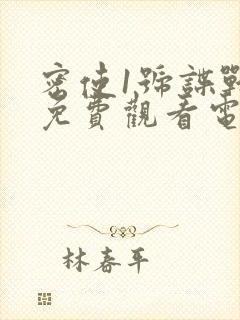 密使1號諜戰
免費觀看電
林春平